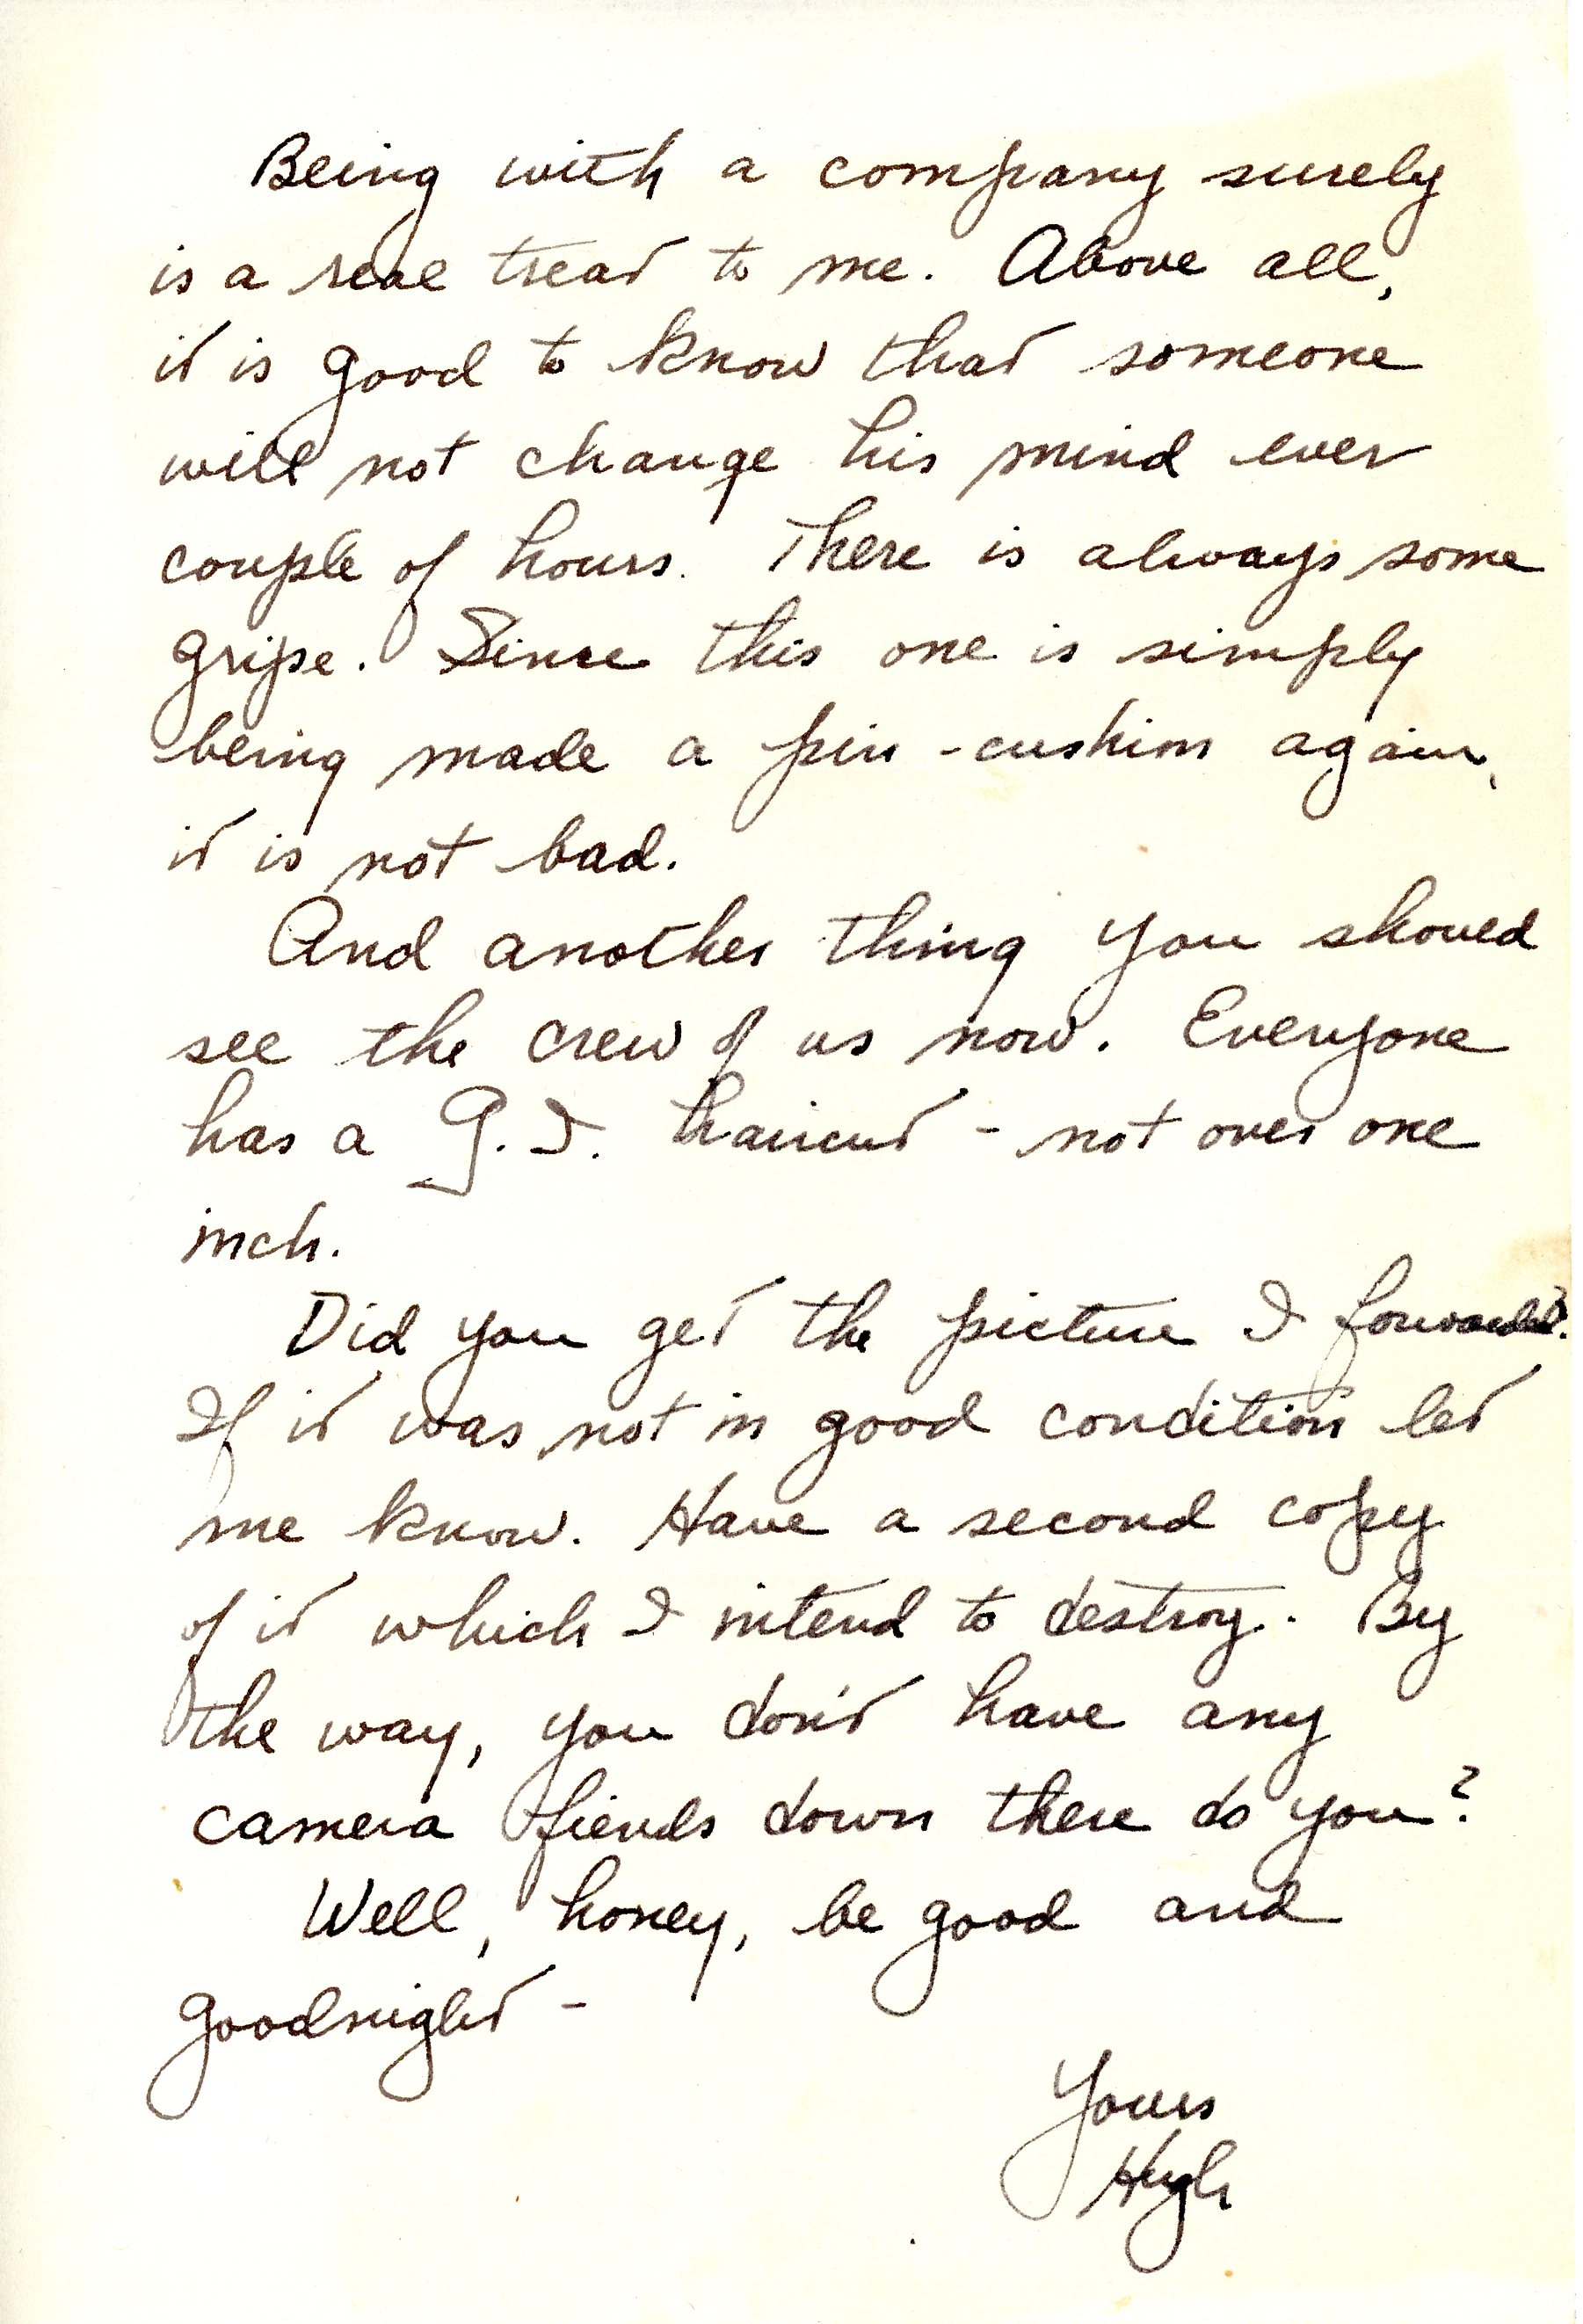 Being with a company surely
is a real treat to me. Above all,
it is good to know that someone
will not change his mind ever
couple of hours. There is always some
gripe. Since this one is simply
being made a pin-cushion again,
it is not bad.
And another thing you should
see the crew of us now. Everyone
has a G.I. haircut - not over one
inch.
Did you get the picture I forwarded?
If it was not in good condition let
me know. Have a second copy
of it which I intend to destroy. By
the way, you don't have any
camera fiends down there do you?
Well, honey, be good and
goodnight -
Yours
Hugh